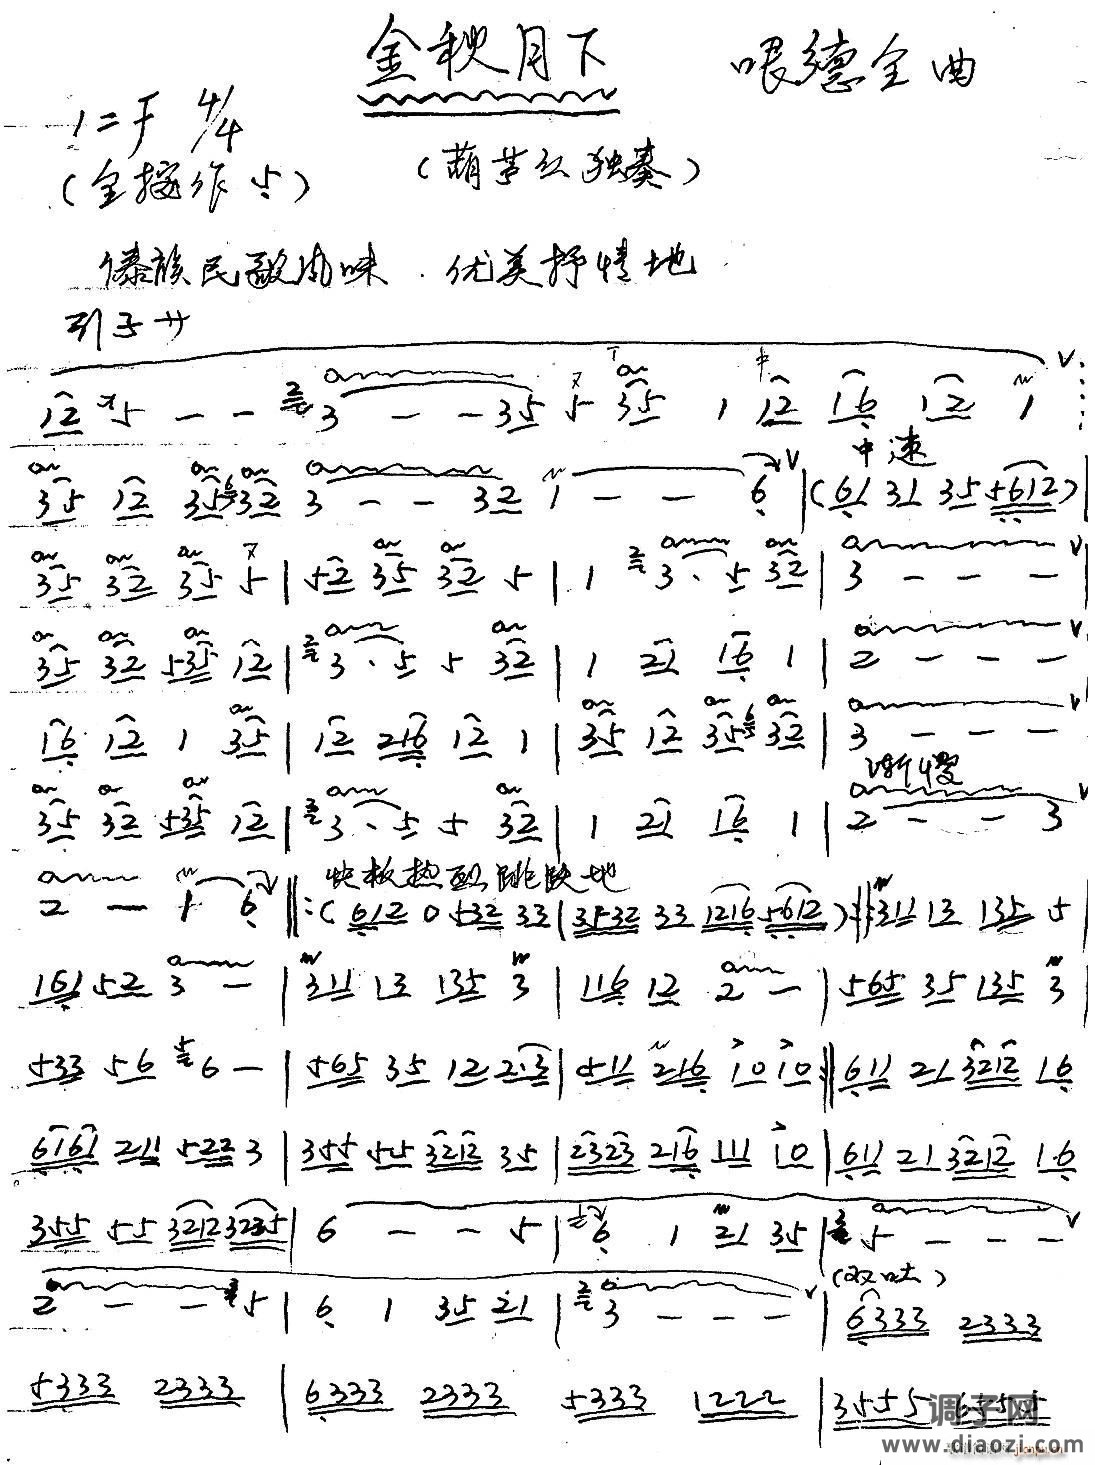 金秋月下
哏德全曲
1=F 4/4
(全按作5)
(葫芦丝独奏)
傣族民歌风味.优美抒情地
引子 サ
12 5 - - 3 - - 35 5 35 1 12 16 12 1
中速
35 12 35 32 3 - - 32 1 - - 6 | (61 31 35 5612) |
35 32 35 5 | 52 35 32 5 | 1 3· 5 32 | 3 - - -
35 32 535 12 | 3· 5 5 32 | 1 21 16 1 | 2 - - -
16 12 1 35 | 12 216 12 1 | 35 12 35 32 | 3 - - -
渐慢
35 32 535 12 | 3· 5 5 32 | 1 21 16 1 | 2 - - 3
快板热烈跳跃地
2 - 1 6 ‖: (612 0 532 33 | 3532 33 1216 5612) :‖: 311 13 135 5
161 52 3 - | 311 13 135 3 | 116 12 2 - | 565 35 135 3
533 56 6 - | 565 35 12 2·3 | 511 216 10 10 :‖ 611 21 3212 16
6161 211 522 3 | 355 55 3212 35 | 2323 216 111 10 | 611 21 3212 16
355 55 3212 3235 | 6 - - 5 | 6 1 21 35 | 5 - - -
(双吐)
2 - - 5 | 6 1 35 21 | 3 - - - | 6333 2333
5333 2333 | 6333 2333 5333 1222 | 3555 6555
调子网
www.diaozi.com